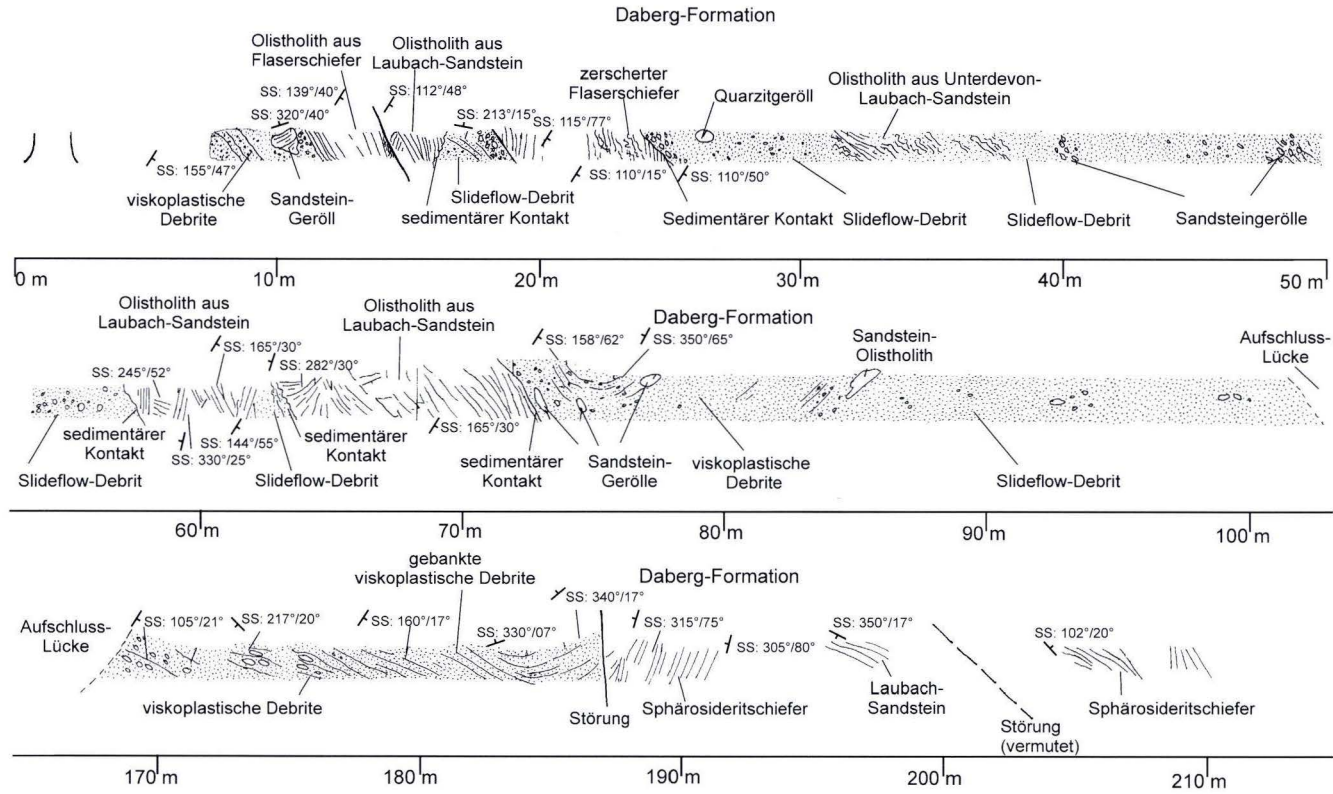 Daberg-Formation
Olistholith aus
Flaserschiefer
Olistholith aus
Laubach-Sandstein
SS: 139°/40°
SS: 112°/48°
SS: 320°/40°
SS: 213°/15°
SS: 115°/77°
zerscherter
Flaserschiefer
Quarzitgeröll
Olistholith aus Unterdevon-
Laubach-Sandstein
SS: 155°/47°
viskoplastische
Debrite
Sandstein-
Geröll
Slideflow-Debrit
sedimentärer Kontakt
SS: 110°/15°
SS: 110°/50°
Sedimentärer Kontakt
Slideflow-Debrit
Slideflow-Debrit
Sandsteingerölle
0 m
10 m
20 m
30 m
40 m
50 m
Olistholith aus
Laubach-Sandstein
Olistholith aus
Laubach-Sandstein
Daberg-Formation
SS: 245°/52°
SS: 165°/30°
SS: 282°/30°
SS: 158°/62°
SS: 350°/65°
Sandstein-
Olistholith
Aufschluss-
Lücke
sedimentärer
Kontakt
SS: 144°/55°
SS: 330°/25°
sedimentärer
Kontakt
SS: 165°/30°
sedimentärer
Kontakt
Sandstein-
Gerölle
viskoplastische
Debrite
Slideflow-Debrit
Slideflow-Debrit
Slideflow-Debrit
60 m
70 m
80 m
90 m
100 m
gebankte
viskoplastische Debrite
Daberg-Formation
Aufschluss-
Lücke
SS: 105°/21°
SS: 217°/20°
SS: 160°/17°
SS: 330°/07°
SS: 340°/17°
SS: 315°/75°
SS: 305°/80°
SS: 350°/17°
SS: 102°/20°
viskoplastische Debrite
Störung
Sphärosideritschiefer
Laubach-
Sandstein
Störung
(vermutet)
Sphärosideritschiefer
170 m
180 m
190 m
200 m
210 m